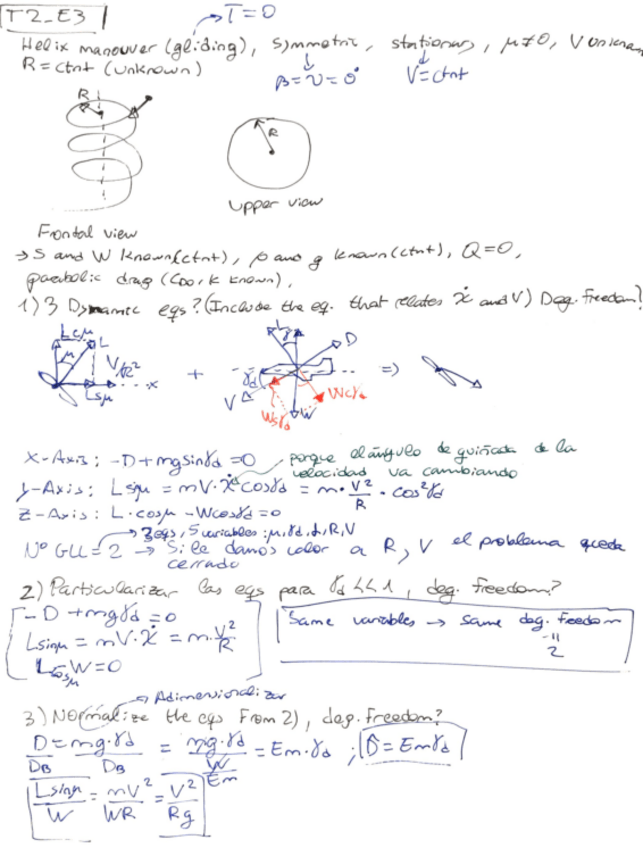 T2_E3
T=0
Helix manouver (gliding), symmetric, stationary, μ≠0, V unknow
R=ctnt (unknown)
β=ν=0°
V=ctnt
R
R
Upper view
Frontal view
→ S and W known(ctnt), ρ and g known(ctnt), Q=0,
parabolic drag (CD0, k known),
1) 3 Dynamic eqs? (Include the eq. that relates ẋ and V) Deg. Freedom?
Lcμ
L
μ
V²/R
x
Lsμ
+
L
γ
D
γd
V
Wsγd
W
Wcγd
⇒
X-Axis: -D+mgsinγd=0
porque el ángulo de guiñada de la
velocidad va cambiando
y-Axis: Lsμ = mV·ẋcosγd = m·V²/R·cos²γd
Z-Axis: L·cosμ -Wcosγd=0
3 eqs, 5 variables: μ, γd, L, R, V
Nº GLL=2 → Si le damos valor a R, V el problema queda
cerrado
2) Particularizar las eqs para γd<<1, deg. freedom?
-D+mgγd=0
Lsinμ = mV·ẋ = m·V²/R
Lcosμ-W=0
Same variables → same deg. freedom
=
2
Adimensionalizar
3) Normalize the eqs from 2), deg. freedom?
D/DB = mg·γd/DB = mg·γd/(W/Em) = Em·γd ; D̂=Emγd
Lsinμ/W = mV²/WR = V²/Rg